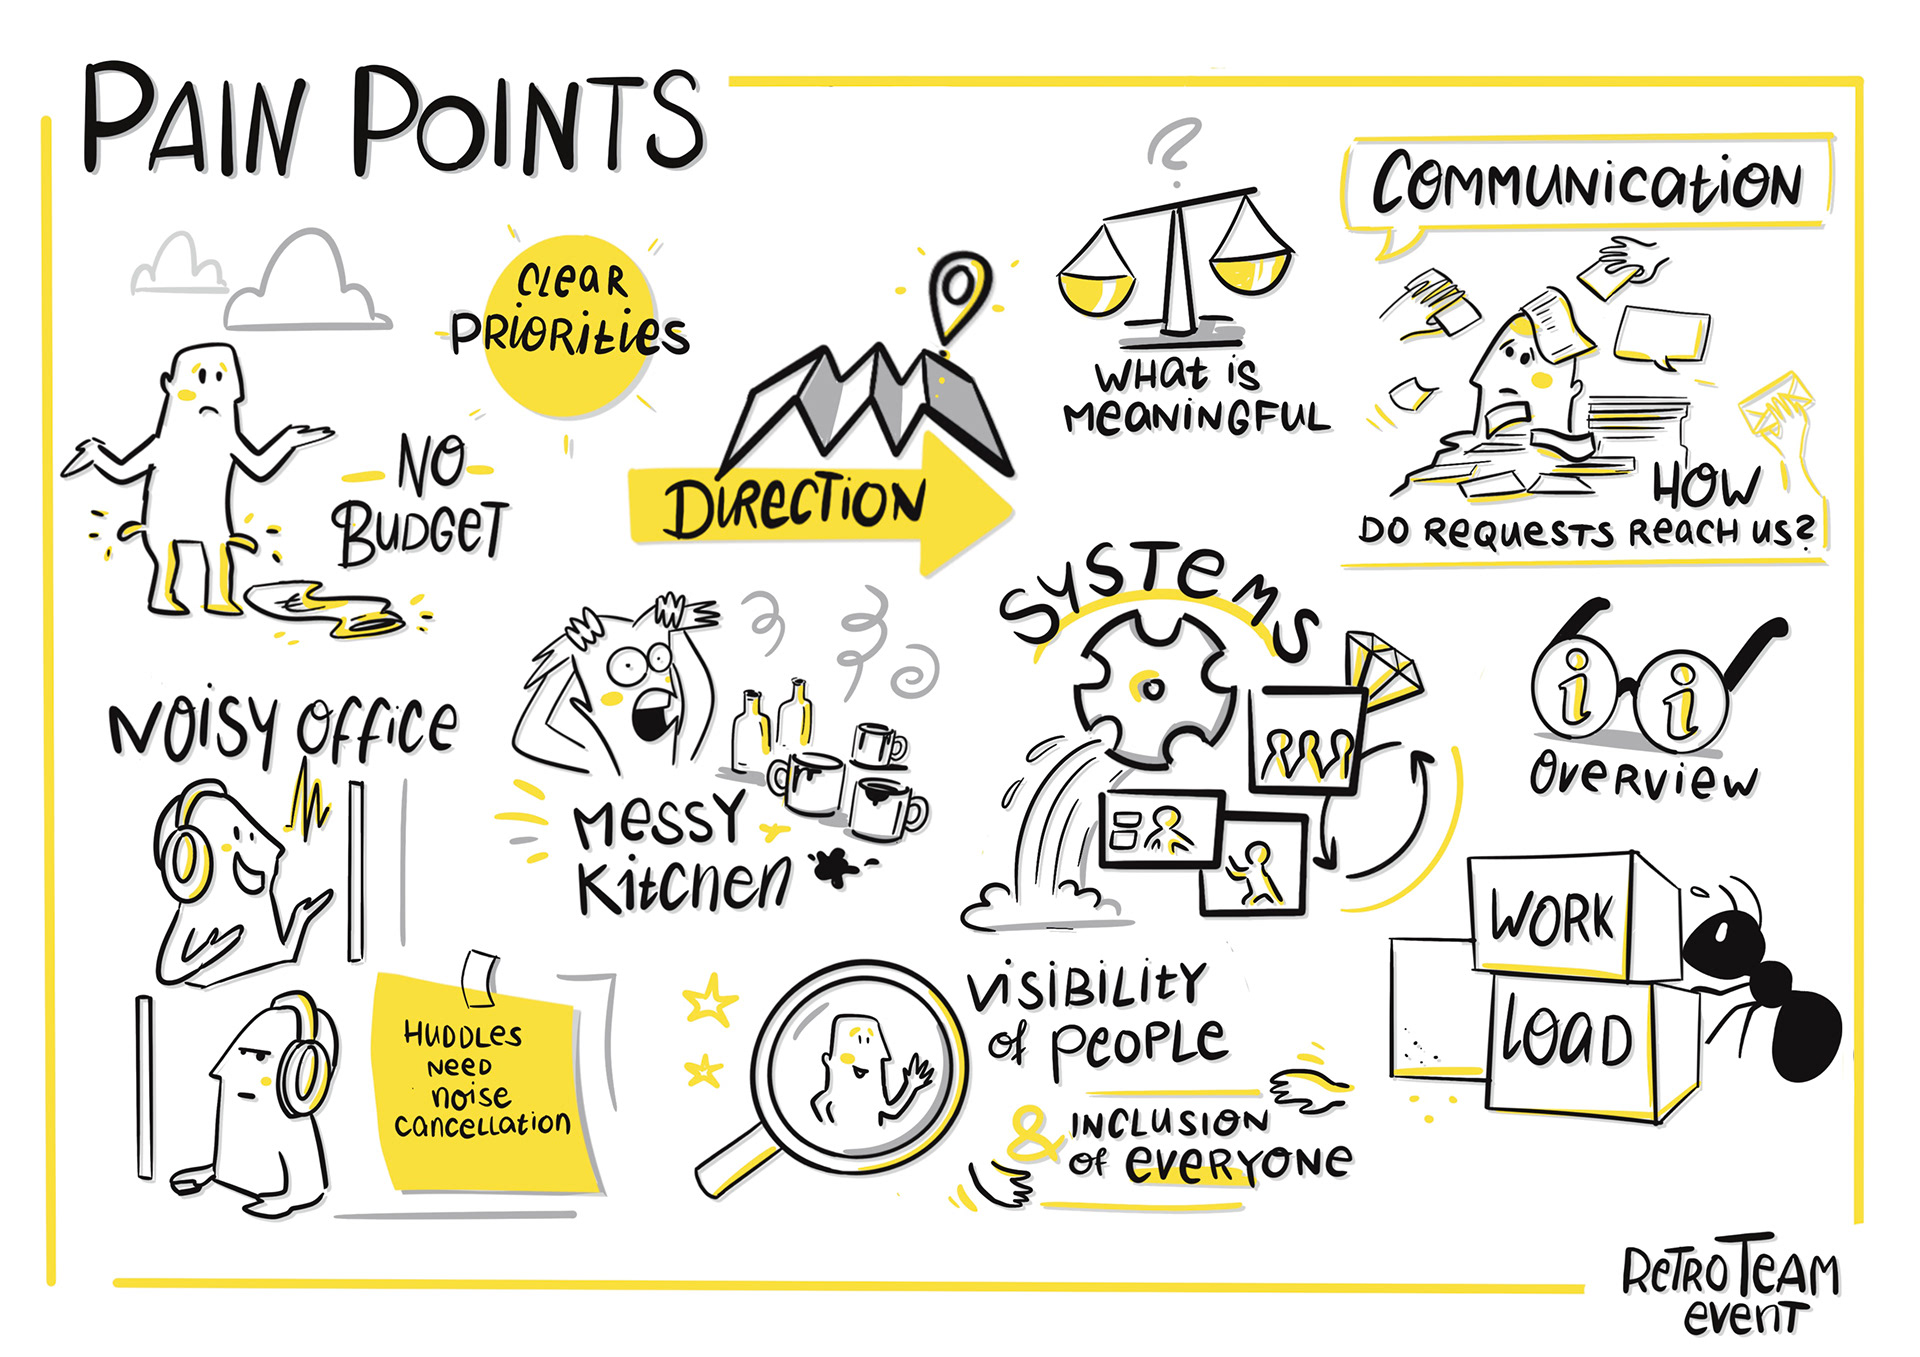 PAIN POINTS
CLEAR
PRIORITIES
NO
BUDGET
DIRECTION
?
WHAT IS
MEANINGFUL
COMMUNICATION
HOW
DO REQUESTS REACH US?
NOISY OFFICE
MESSY
KITCHEN
SYSTEMS
i i
OVERVIEW
HUDDLES
NEED
NOISE
CANCELLATION
VISIBILITY
OF PEOPLE
& INCLUSION
OF EVERYONE
WORK
LOAD
RETRO TEAM
EVENT